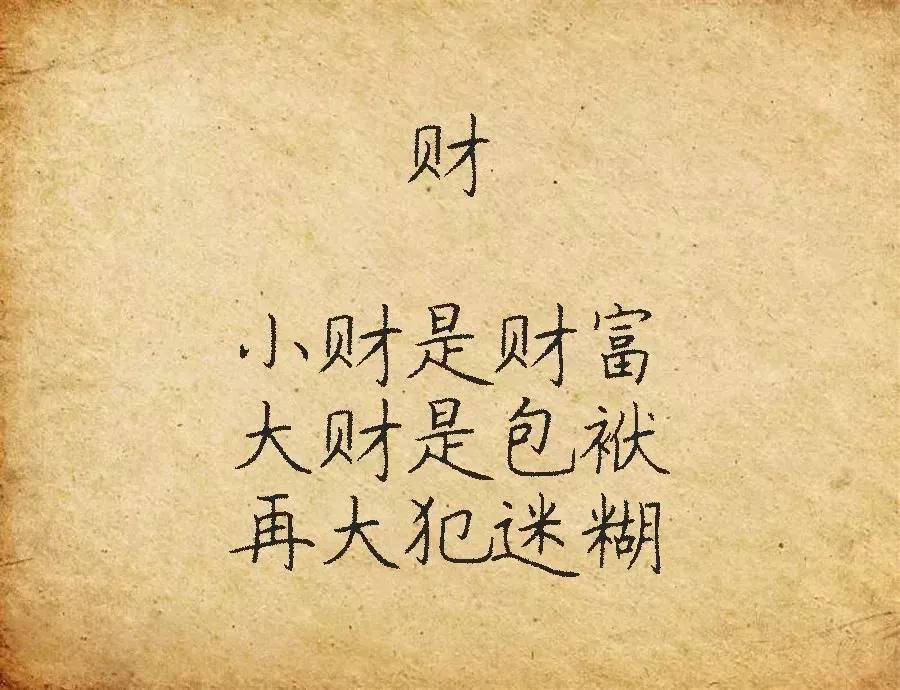 财
小财是财富
大财是包袱
再大犯迷糊